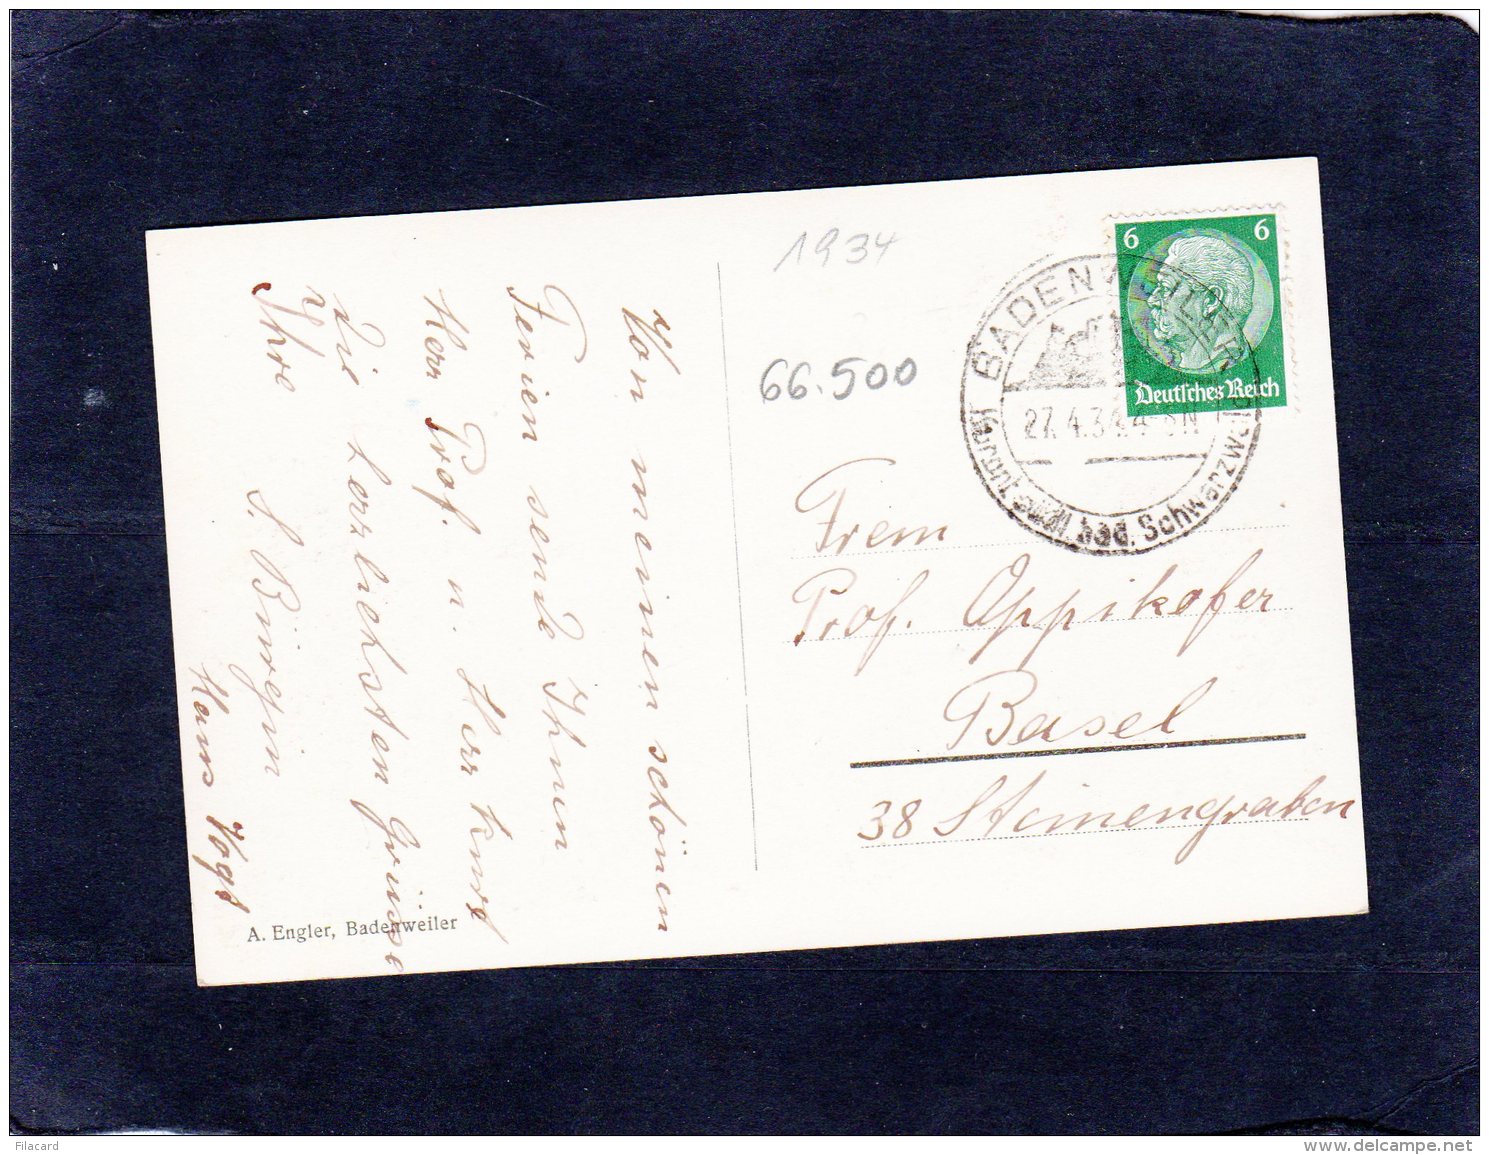 Von meinen schönen
Ferien sende Ihnen
Herr Prof. u. Herr Kurt
die herzlichsten Grüsse
Ihre
S. Bürgin
Hans Vogt
A. Engler, Badenweiler
1934
66.500
6 6
Deutsches Reich
BADENWEILER
27.4.34.
bad. Schwarzwald
Prof. Oppikofer
Basel
38 Steinengraben
Filacard
delcampe.net